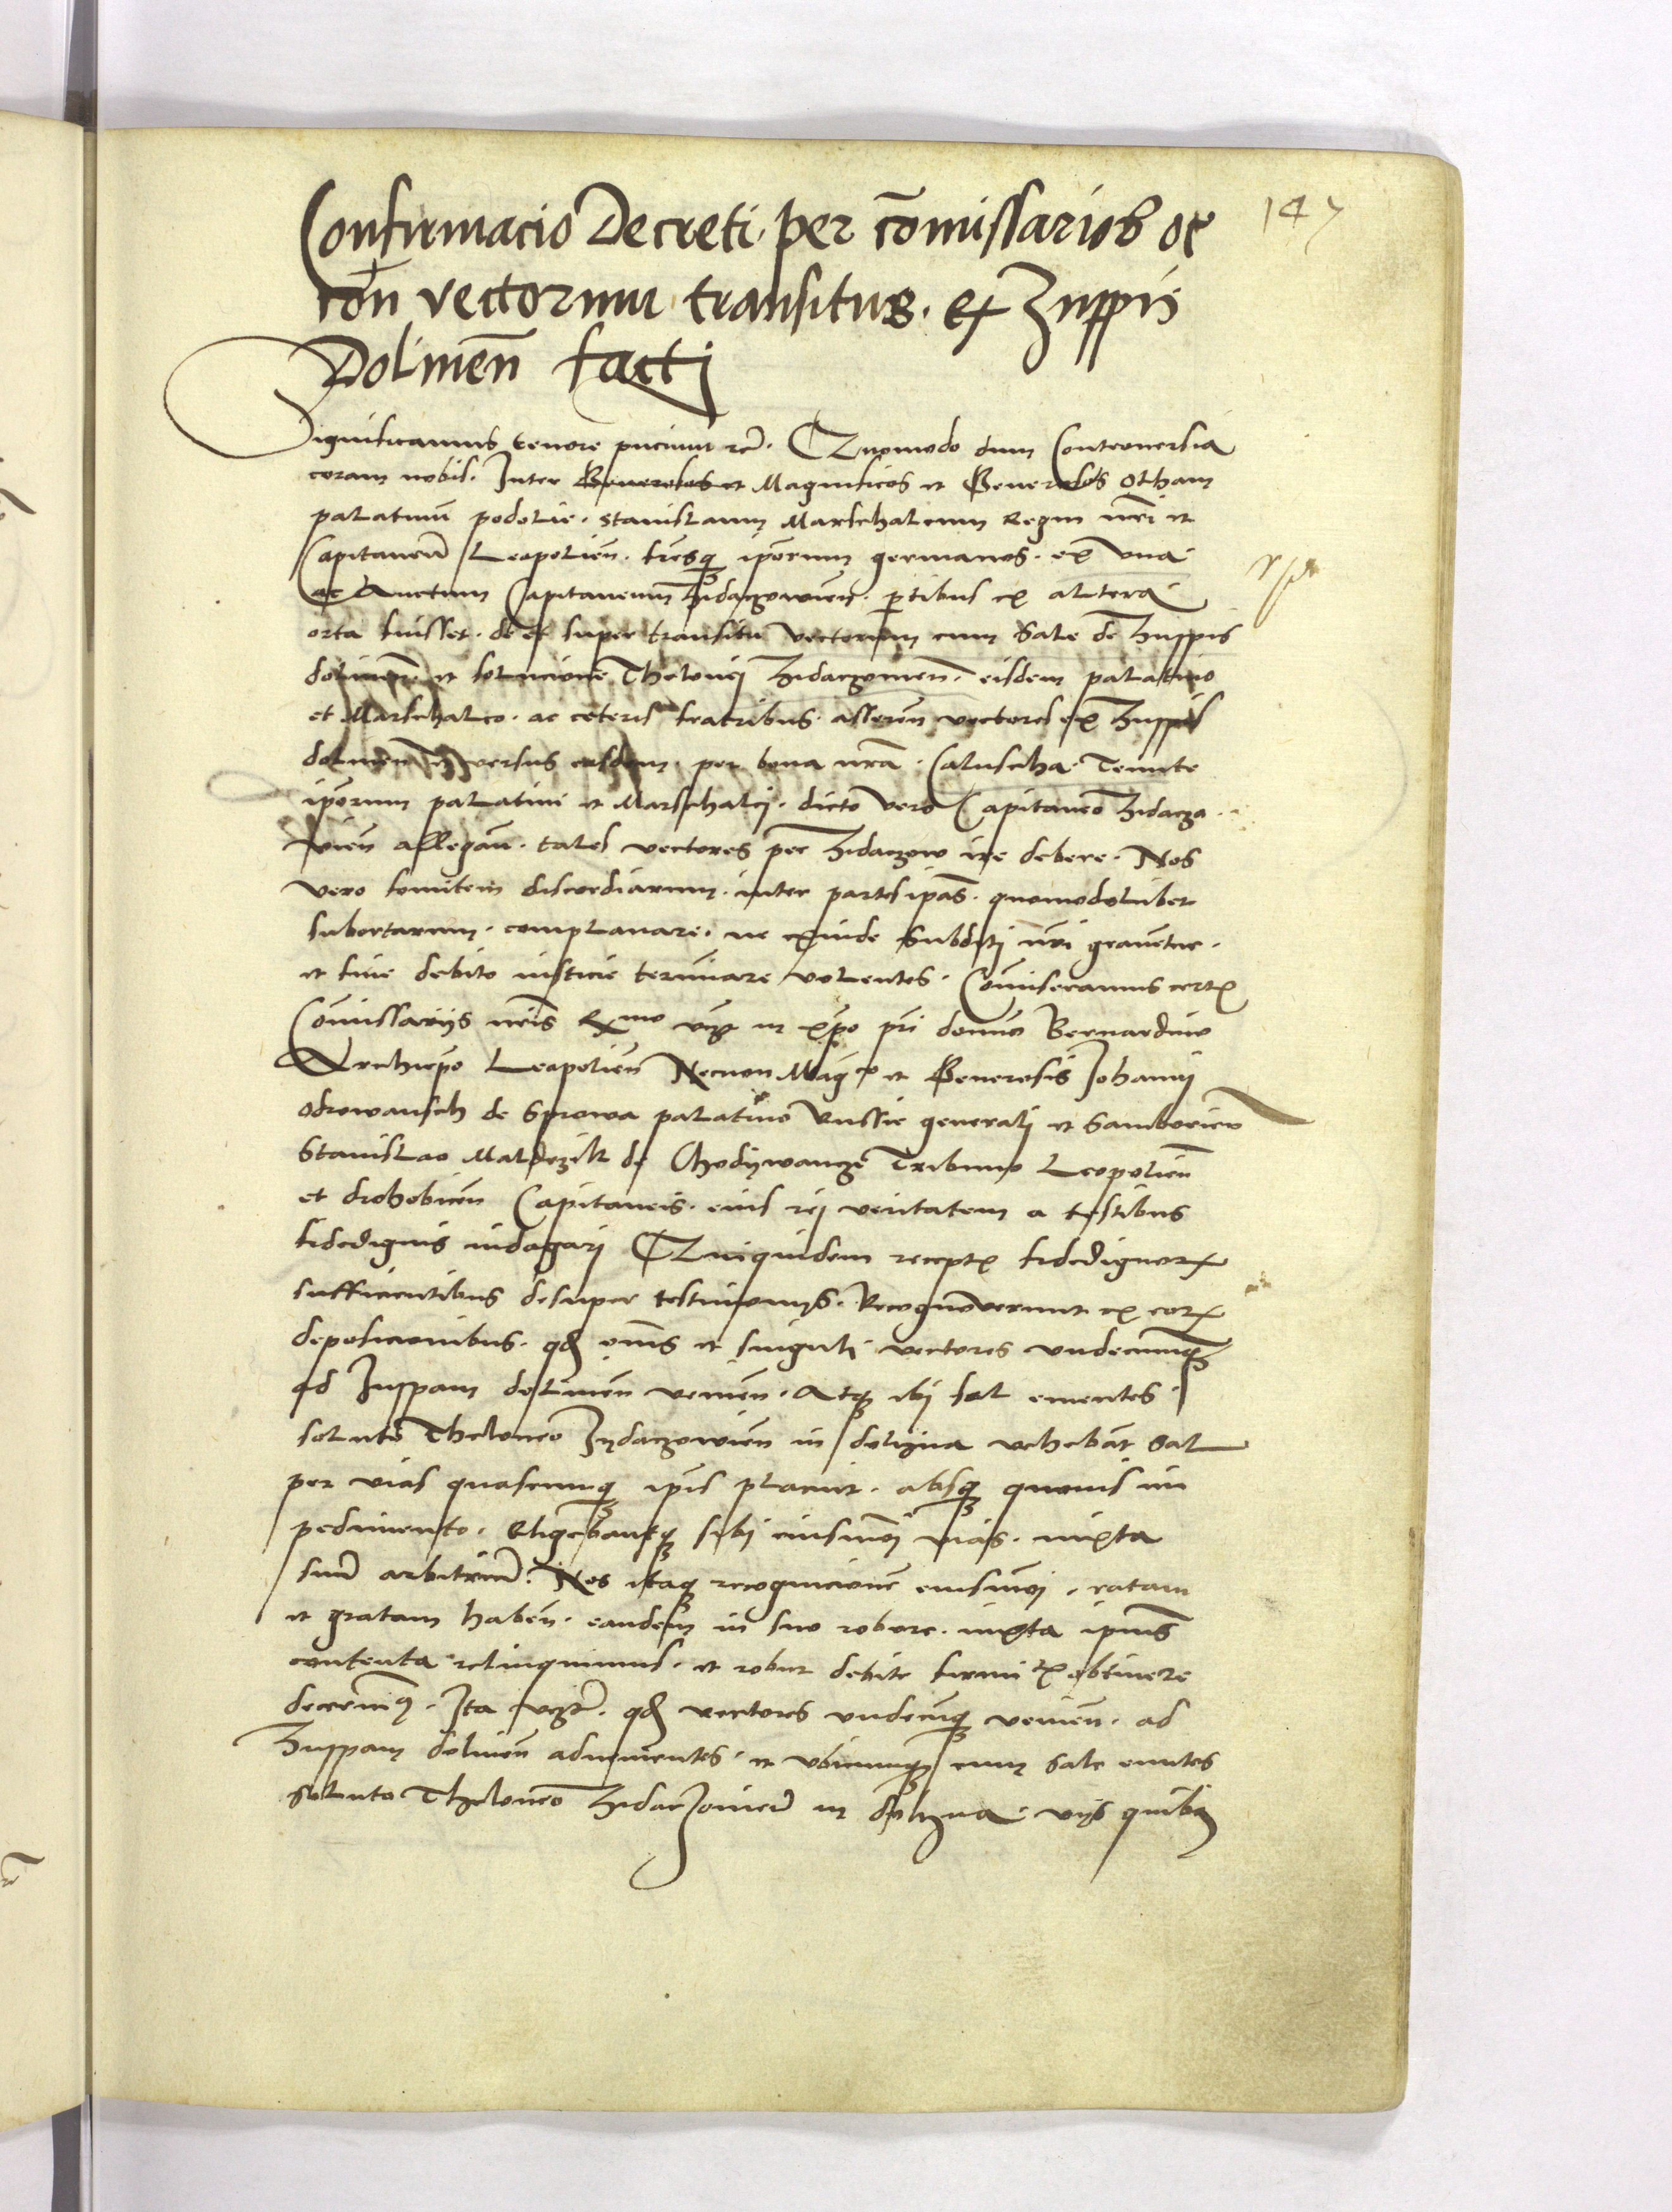 147
Confirmacio Decreti per com̄issarios oc
con vectorum transitus ex Zuppis
Dolinen̄ facti
Significamus tenore pn̄cium rc̄. Quomodo dum Controversia
coram nobis. Inter Generosos et Magnificos et Generosos Otham
palatinū podolie. Stanislaum Marschalcum Regni nr̄i et
Capitaneū Leopolien̄. fr̄esq ip̄orum germanos. ex vna
ac Capitaneum Zidaczowien̄. p̄tibus ex altera
orta fuisset. de et super transitu vectorum cum Sale de Zuppis
dolinen̄. et solucione Thelonei Zidaczowien̄. eisdem palatino
et Marschalco. ac ceteris fratribus. asseren̄ vectores ex Zuppis
dolinen̄ versus eisdem. per bona nr̄a. Caluscha. Tenute
ip̄orum palatini et Marschalci. dicto vero Capitaneo Zidaczo
wien̄ allegan̄. tales vectores per Zidaczow ire debere. Nos
vero fomitem discordiarum. inter partes ip̄as. quomodolibet
subortarum. complanare. ne exinde Subditi nr̄i gravētur.
et fine debito iusticie terminare volentes. Com̄iseramus certis
Com̄issariis nr̄is R̄mo in xp̄o pr̄i domino Bernardino
Archiep̄o Leopolien̄ Necnon Maḡco et Generosis Johanni
Odrowansch de Sprowa palatino Russie generali et Samborien̄
Stanislao Maldrzik de Chodywancze Tribuno Leopolien̄
et drohobicen̄ Capitaneis. eius rei veritatem a testibus
fidedignis indagari Quiquidem receptis fidedignorum
sufficientibus desuper testimoniis. Recognoverunt ex eorum
deposicionibus. qd om̄s et singuli vectores undecumq
ad Zuppam dolinen̄ venien̄. Atq ibi sal ementes
soluto Theloneo Zydaczowien̄ in dolyna vehebāt Sal
per vias quascumq ip̄is placuit. absq quovis im
pedimento. Eligebantq sibi eiusmōi vias. iuxta
suū arbitriū. Nos itaq recognicionē eiusmōi. ratam
et gratam haben̄. eandem in suo robore. iuxta ip̄ius
contenta relinquimus. et robur debite firmitatis obtinere
decernim9. Ita qd vectores undecumq venien̄. ad
Zuppam dolinen̄ aduenientes. et vbicumq cum Sale euntes
Soluto Theloneo Zidaczowien̄ in dolyna. viis quibus